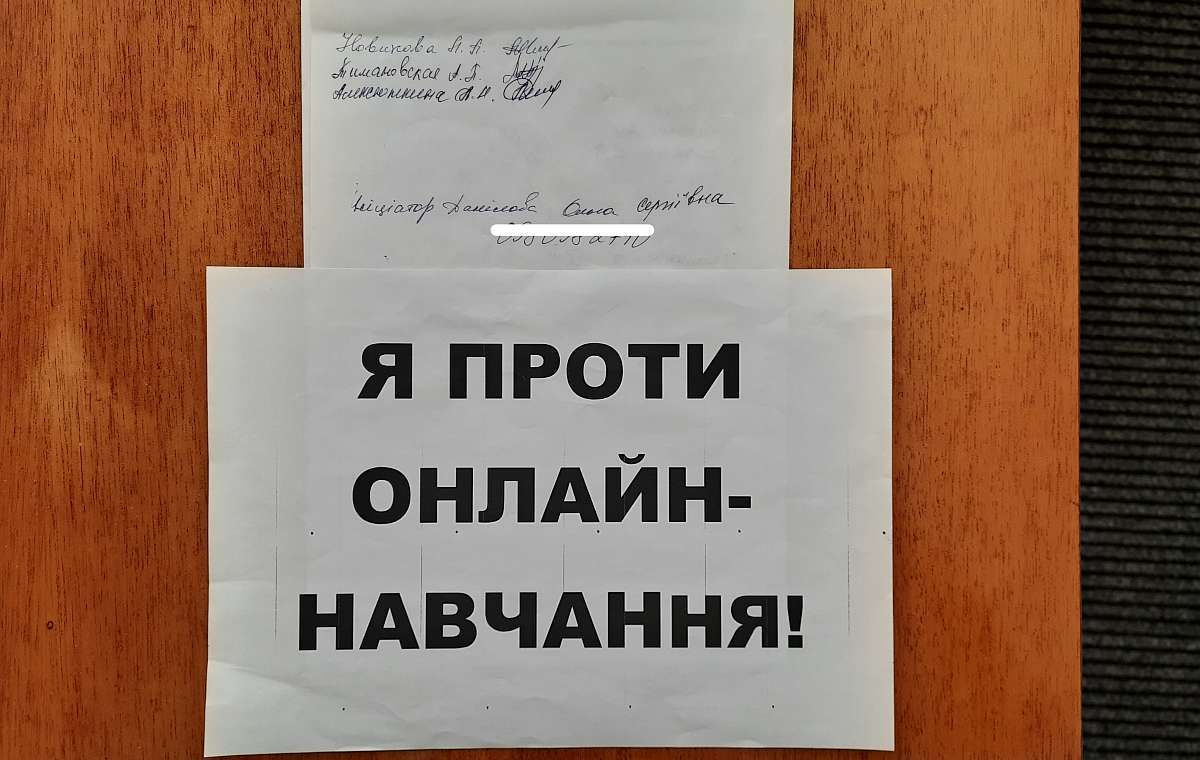 Новикова Л. А.
Тимановская А. П.
Алексюткина А. Н.
Ініціатор Данілова Олена Сергіївна
Я ПРОТИ
ОНЛАЙН-
НАВЧАННЯ!